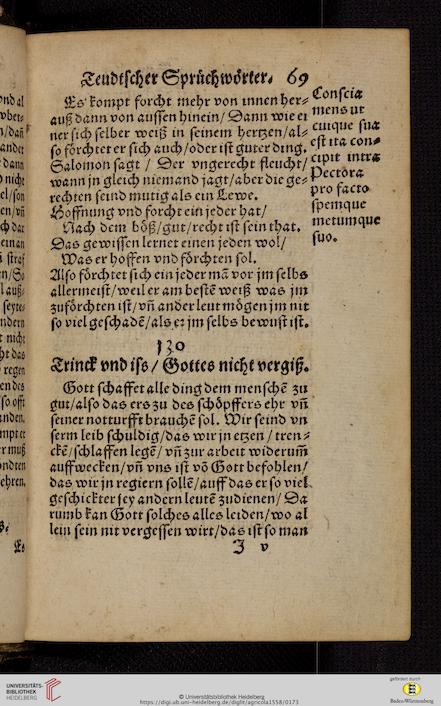 Teudtscher Sprüchwörter. 69
Es kompt forcht mehr von innen her=
auß dann von aussen hinein/ Dann wie ei
ner sich selber weiß in seinem hertzen/al=
so förchtet er sich auch/oder ist guter ding.
Salomon sagt / Der vngerecht fleucht/
wann jn gleich niemand jagt/aber die ge=
rechten seind mutig als ein Lewe.
Hoffnung vnd forcht ein jeder hat/
Nach dem böß/gut/recht ist sein that.
Das gewissen lernet einen jeden wol/
Was er hoffen vnd förchten sol.
Also förchtet sich ein jeder mā vor jm selbs
allermeist/weil er am bestē weiß was jm
zuförchten ist/vñ ander leut mögen jm nit
so viel geschadē/als er jm selbs bewust ist.
Conscia
mens ut
cuique sua
est ita con=
cipit intra
Pectora
pro facto
spemque
metumque
suo.
130
Trinck vnd iss / Gottes nicht vergiß.
Gott schaffet alle ding dem menschē zu
gut/also das ers zu des schöpffers ehr vñ
seiner notturfft brauchē sol. Wir seind vn
serm leib schuldig/das wir jn etzen / tren=
ckē/schlaffen legē/ vñ zur arbeit widerum̄
auffwecken/vñ vns ist vō Gott befohlen/
das wir jn regiern sollē/auff das er so viel
geschickter sey andern leutē zudienen/ Da
rumb kan Gott solches alles leiden/wo al
lein sein nit vergessen wirt/das ist so man
J v
UNIVERSITÄTS-
BIBLIOTHEK
HEIDELBERG
© Universitätsbibliothek Heidelberg
https://digi.ub.uni-heidelberg.de/diglit/agricola1558/0173
gefördert durch
Baden-Württemberg